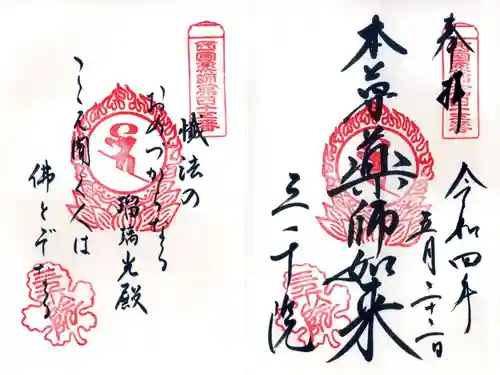 奉拝
令和四年
五月二十二日
本尊薬師如来
三千院
西國薬師第四十五番
懺法の
瑠璃光殿
聞く人は
佛とぞなる
西國薬師第四十五番